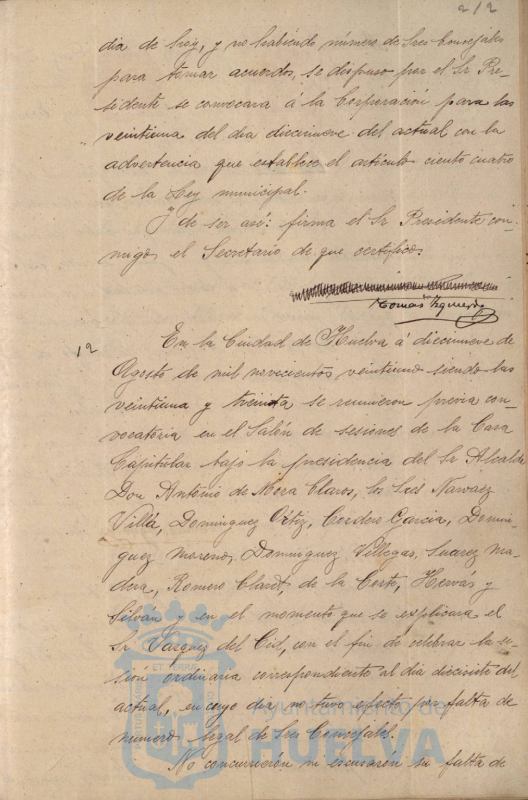 212
dia de hoy, y no habiendo número de Sres Concejales
para tomar acuerdos, se dispuso por el Sr Pre-
sidente se convocara á la Corporación para las
veintiuna del dia diecinueve del actual con la
advertencia que establece el artículo ciento cuatro
de la Ley municipal.
Y de ser así: firma el Sr Presidente con-
migo, el Secretario de que certifico.
Tomás Izquierdo
12
En la Ciudad de Huelva á diecinueve de
Agosto de mil novecientos veintiuno siendo las
veintiuna y treinta se reunieron previa con-
vocatoria en el Salón de sesiones de la Casa
Capitular bajo la presidencia del Sr Alcalde
Don Antonio de Mora Claros, los Sres Narvaez
Villa, Dominguez Ortiz, Cordero Garcia, Domin-
guez Moreno, Dominguez Villegas, Suarez Ma-
dera, Romero Claret, de la Corte, Hervás y
Silván y en el momento que se explicara el
Sr Vazquez del Cid, con el fin de celebrar la se-
sión ordinaria correspondiente al dia diecisiete del
actual, en cuyo dia no tuvo efecto por falta de
numero legal de Sres Concejales.
No concurrieron ni escusaron su falta de
Ayuntamiento de
HUELVA